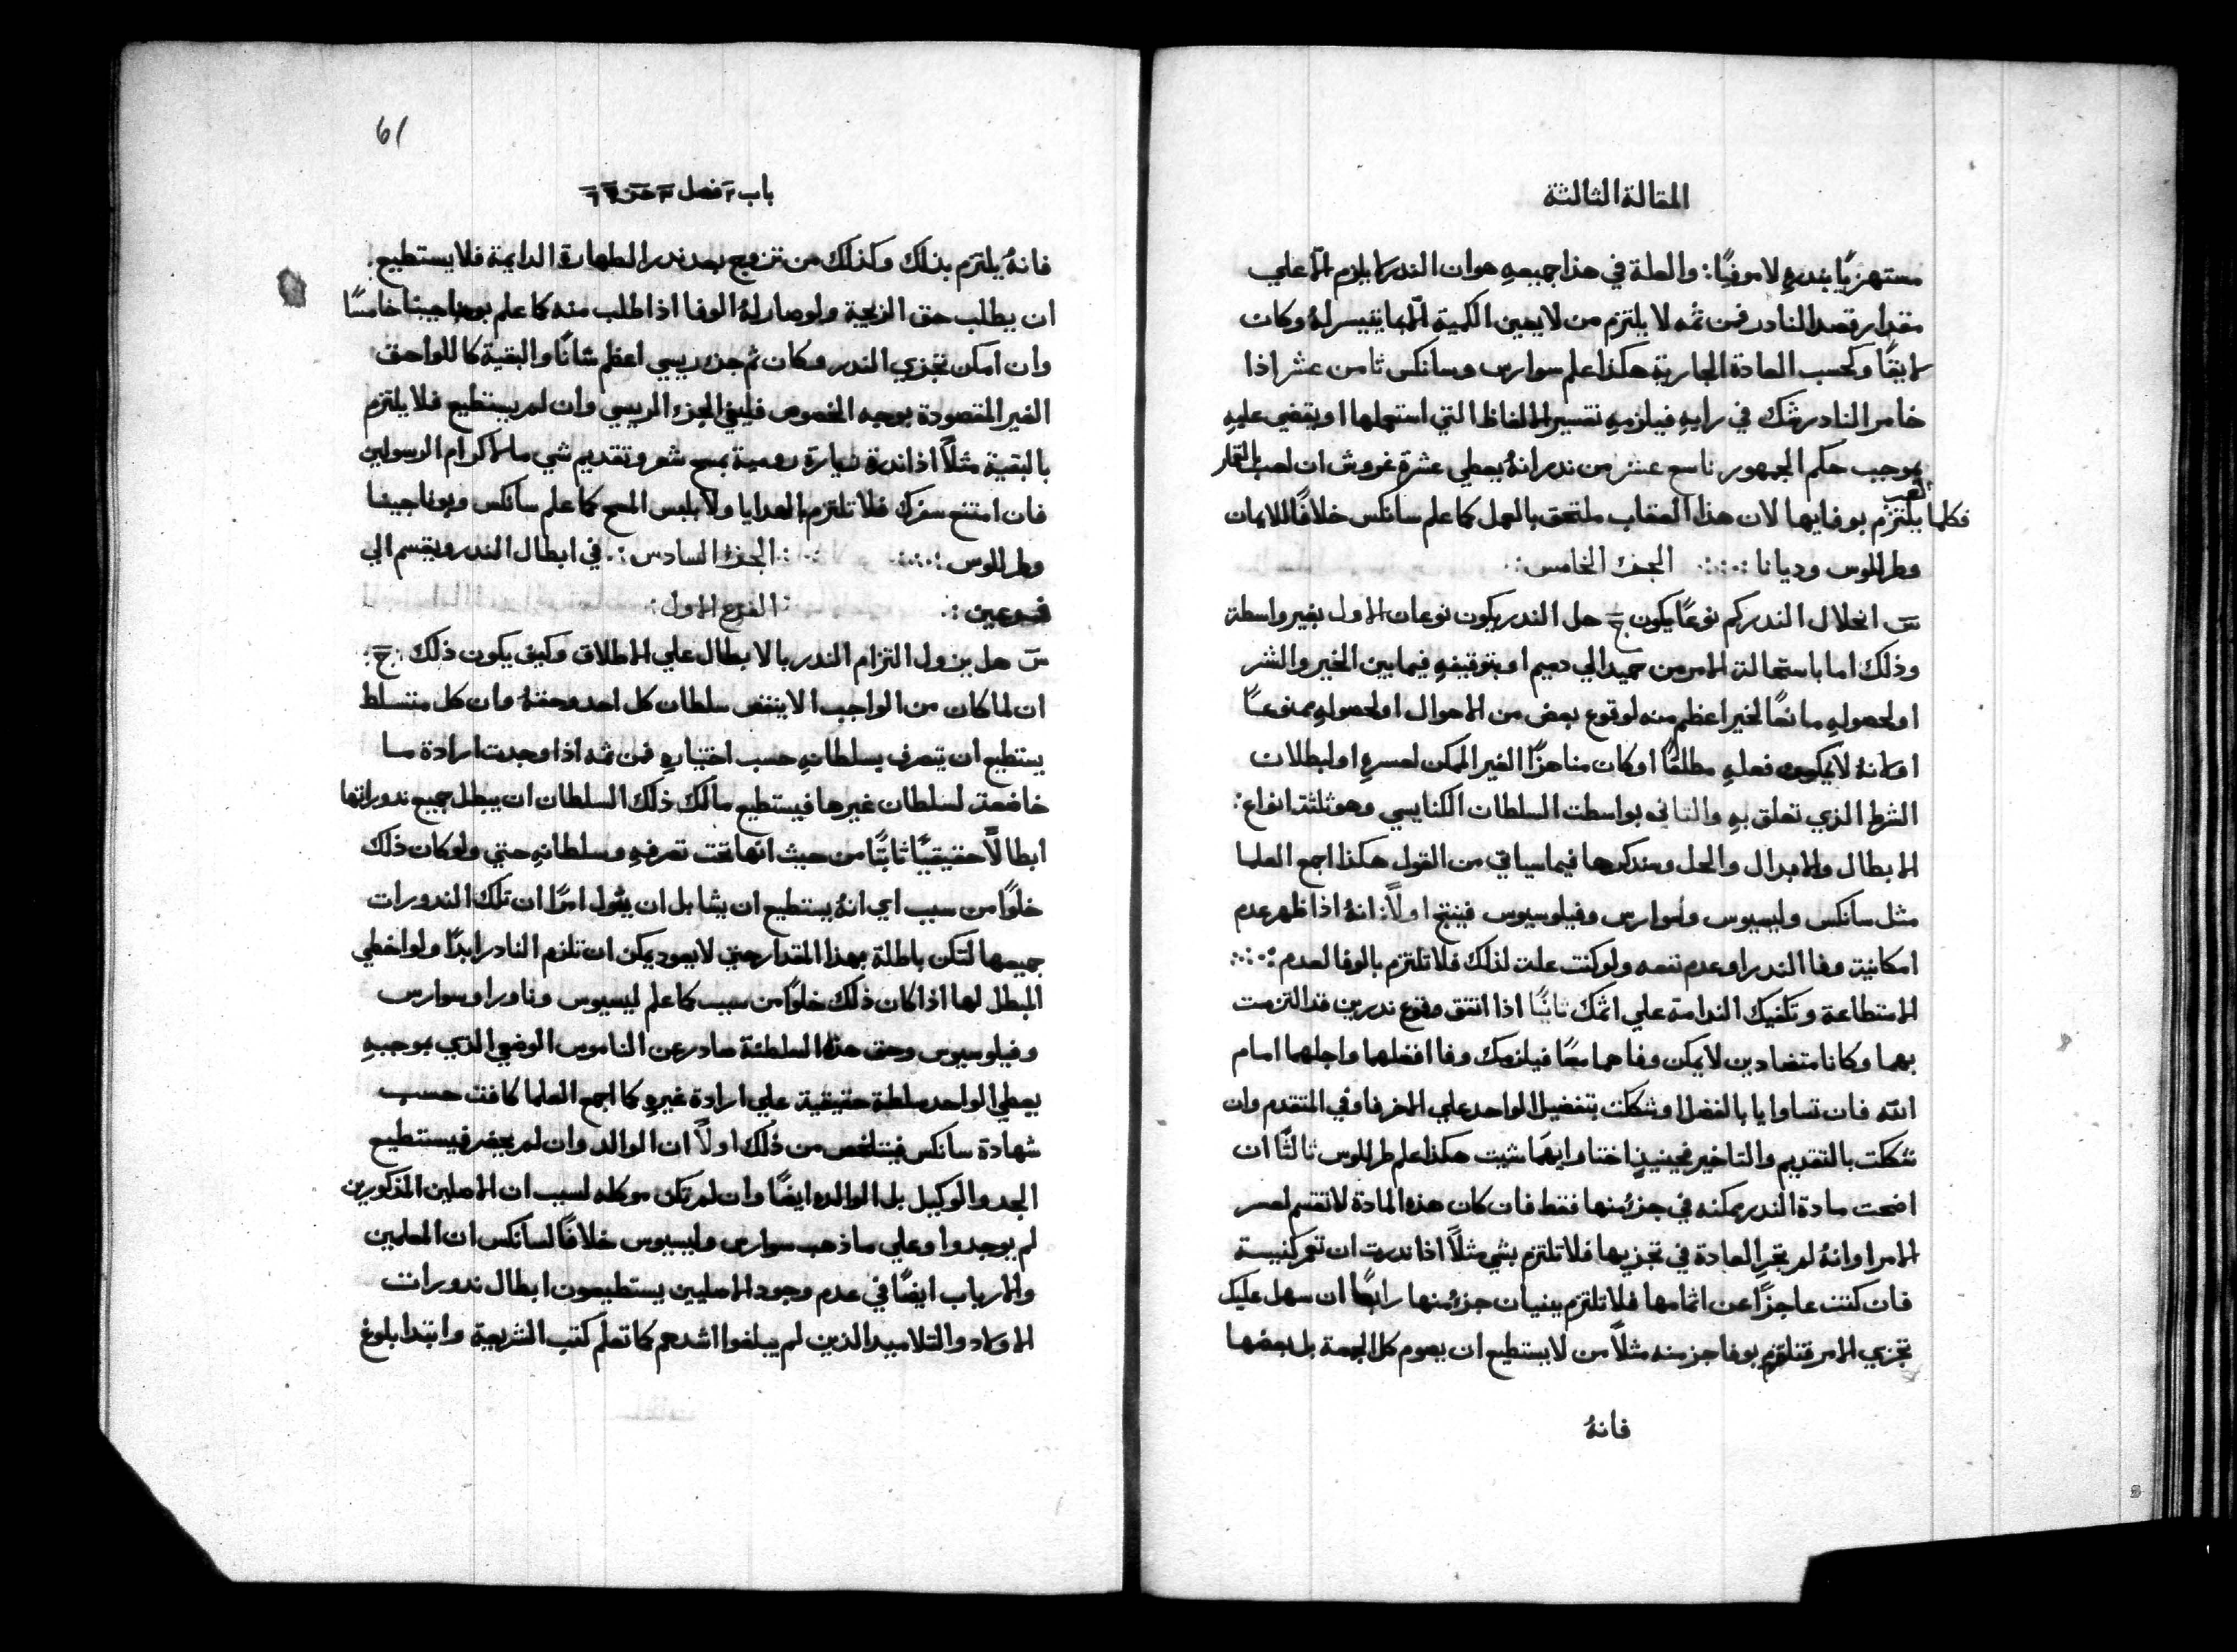 المقالة الثالثة
مستهزيًا بندرهِ لا موفيًا: والعلة في هذا جميعهِ هو ان الندر لا يلزم الا علي
مقدار قصد النادر فمن ثمه لا يلتزم من لا يعين الكمية الا بما يتيسر لهُ وكان
لايقًا وكحسب العادة الجارية هكذا علم سوارس وسانكس ثامن عشر اذا
خامر النادر شك في رايهِ فيلزمهِ تفسير الالفاظ التي استعملها او يقضي عليهِ
بموجب حكم الجمهور تاسع عشر من ندر انهُ يعطي عشرة غروش ان لعب بالقمار
فكلما لعب يلتزم بوفايها لان هذا العقاب ملتحق بالعمل كما علم سانكس خلافًا للايمان
وطرللوس وديانا الجزء الخامس:
س انحلال الندر كم نوعًا يكون ج حل الندر يكون نوعان الاول بغير واسطة
وذلك اما باستحالة الامر من حميد الي دميم او بتوقيفهِ فيما بين الخير والشر
او لحصولهِ مانعًا لخير اعظم منه لوقوع بعض من الاحوال او لحصولهِ ممنوعًا
او لانهُ لا يمكن فعلهِ مطلقًا او كان مناهزًا الغير الممكن لعسرهِ او لبطلان
الشرط الذي تعلق بهِ والثاني بواسطت السلطان الكنايسي وهو ثلثة انواع:
الابطال والابدال والحل وسندكرها فيما سياتي من القول هكذا اجمع العلما
مثل سانكس وليسيوس وسوارس وفيلوسيوس فينتج اولًا: انهُ اذا ظهر عدم
امكانية وفا الندر او عدم نفعه ولو كنت علت لذلك فلا تلتزم بالوفا لعدم
الاستطاعة وتكفيك الندامة علي اثمك ثانيًا اذا اتفق وقوع ندرين قد التزمت
بهما وكانا متضادين لا يمكن وفاهما معًا فيلزمك وفا افضلهما واجلهما امام
الله فان تساوايا بالفضل او شككت بتفضيل الواحد علي الاخر فاوفي المتقدم وان
شككت بالتقديم والتاخير فحينيذٍ اختار ايهما شيت هكذا علم طرللوس ثالثًا ان
اضحت مادة الندر ممكنه في جزءٍ منها فقط فان كان هذه المادة لا تقسم لعسر
الامر او انهُ لم تجرِ العادة في تجزيها فلا تلتزم بشي مثلًا اذا ندرت ان تعمر كنيسة
فان كنت عاجزًا عن اتمامها فلا تلتزم ببنيان جزءٍ منها رابعًا ان سهل عليك
تجزي الامر فتلتزم بوفا جز منه مثلًا من لا يستطيع ان يصوم كل الجمعة بل بعضها
فانهُ
61
باب ٢ فصل ٣ جزء
فانهُ يلتزم بذلك وكذلك من تزوج بعد ندر الطهارة الدايمة فلا يستطيع
ان يطلب حق الزيجة ولو صار لهُ الوفا اذا طلب منه كما علم بوناجينا خامسًا
وان امكن تجزي الندر وكان ثم جزء ريسي اعظم شانًا والبقية كاللواحق
الغير المقصودة بوجه الخصوص فليفي الجزء الريسي وان لم يستطيع فلا يلتزم
بالبقية مثلًا اذا ندرة زيارة رومية بمسح شعر وتقديم شي ما لاكرام الرسولين
فان امتنع سفرك فلا تلتزم بالهدايا ولا بلبس المسح كما علم سانكس وبوناجينا
وطرللوس الجزء السادس: في ابطال الندر ويقسم الي
فرعين: الفرع الاول:
س هل يزول التزام الندر بالابطال علي الاطلاق وكيف يكون ذلك ج:
ان لما كان من الواجب الا ينقض سلطان كل احد وحقهُ وان كل متسلط
يستطيع ان يتصرف بسلطانهِ حسب اختيارهِ فمن ثمه اذا وجدت ارادة ما
خاضعة لسلطان غيرها فيستطيع مالك ذلك السلطان ان يبطل جميع ندوراتها
ابطالًا حقيقيًا ثابتًا من حيث انها تحت تصرفهِ وسلطانهِ حتي ولو كان ذلك
خلوًا من سبب اي انهُ يستطيع ان يشا بل ان يقول امرًا ان تلك الندورات
جميعها لتكن باطلة بهذا المقدار حتي لا يعود يمكن ان تلزم النادر ابدًا ولو اخطي
المبطل لها اذا كان ذلك خلوًا من سبب كما علم ليسيوس وناورا وسوارس
وفيلوسيوس وحق هذه السلطنة صادر عن الناموس الوضعي الذي بموجبهِ
يعطي الواحد سلطة حقيقية علي ارادة غيرهِ كما اجمع العلما كافت حسب
شهادة سانكس فيتلخص من ذلك اولًا ان الوالد وان لم يحضر فيستطيع
الجد والوكيل بل الوالده ايضًا وان لم تكن موكله لسبب ان الاصلين المذكورين
لم يوجدوا وعلي ما ذهب سوارس وليسيوس خلافًا لسانكس ان المعلمين
والارباب ايضًا في عدم وجود الاصليين يستطيعون ابطال ندورات
الاولاد والتلاميد الذين لم يبلغوا اشدهم كما تعلم كتب الشريعة وابتدا بلوغ